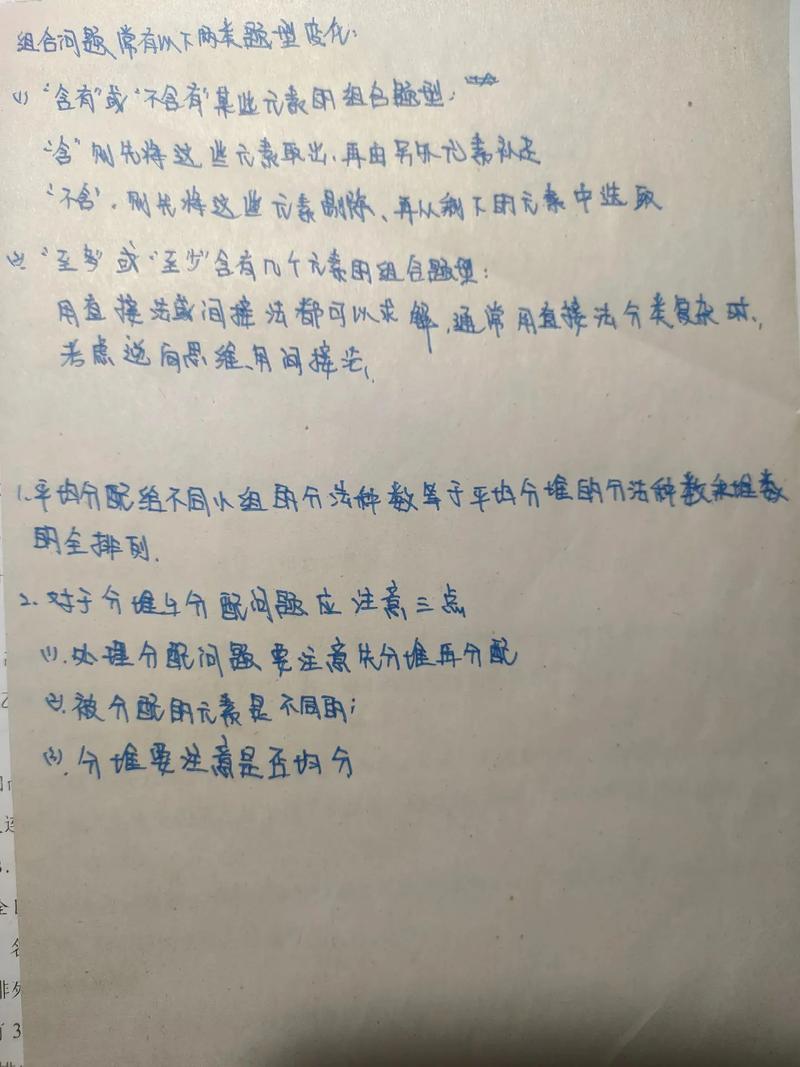 组合问题,常有以下两类题型变化:
(1) "含有"或"不含有"某些元素的组合题型:
"含",则先将这些元素取出,再由另外元素补足
"不含",则先将这些元素剔除、再从剩下的元素中选取
(2) "至多"或"至少"含有几个元素的组合题型:
用直接法或间接法都可以求解,通常用直接法分类复杂时,
考虑逆向思维,用间接法,
1.平均分配给不同小组的分法种数等于平均分堆的分法种数乘堆数
的全排列.
2.对于分堆与分配问题应注意三点
(1).处理分配问题要注意先分堆再分配
(2).被分配的元素是不同的;
(3).分堆要注意是否均分